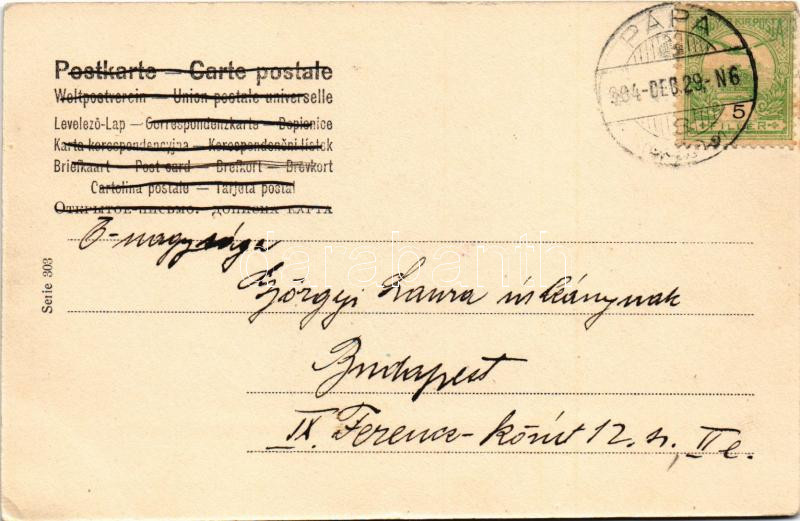 Postkarte – Carte postale
Weltpostverein – Union postale universelle
Levelező-Lap – Correspondenzkarte – Dopisnice
Karta korespondencyjna – Korespondenční lístek
Briefkaart – Post card – Brefkort – Brevkort
Cartolina postale – Tarjeta postal
Открытое письмо.
PÁPA
904-DEC.29.-N6
MAGYAR KIR. POSTA
5
FILLÉR
Ő-nagysága
Györgyi Laura úrleánynak
Budapest
IX. Ferencz-körút 12. sz, II e.
Serie 303
darabanth